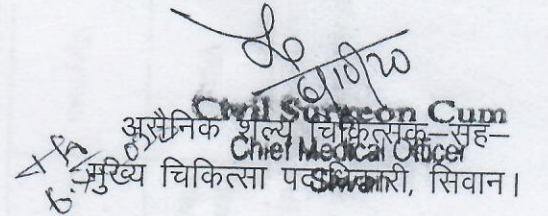 6/10/20
Civil Surgeon Cum
असैनिक शल्य चिकित्सक-सह-
Chief Medical Officer
मुख्य चिकित्सा पदाधिकारी, सिवान।
Siwan